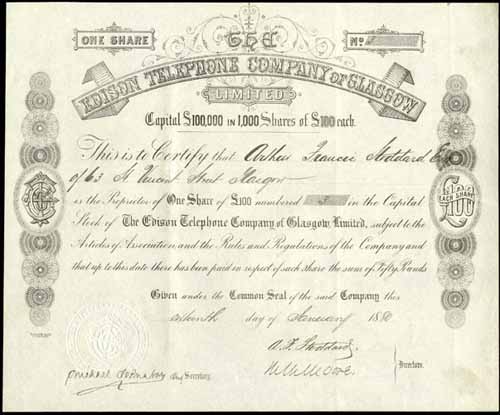 ONE SHARE
THE
No
EDISON TELEPHONE COMPANY OF GLASGOW
LIMITED
Capital £100,000 IN 1,000 Shares of £100 each.
This is to Certify that Arthur Francis Stoddard Esq
of 63 St Vincent Street Glasgow
is the Proprietor of One Share of £100 numbered 3 in the Capital
Stock of The Edison Telephone Company of Glasgow Limited, subject to the
Articles of Association and the Rules and Regulations of the Company and
that up to this date there has been paid in respect of such share the sum of Fifty Pounds
£100
EACH SHARE
Given under the Common Seal of the said Company this
day of January 1880
A. F. Stoddard
Directors.
Secretary.